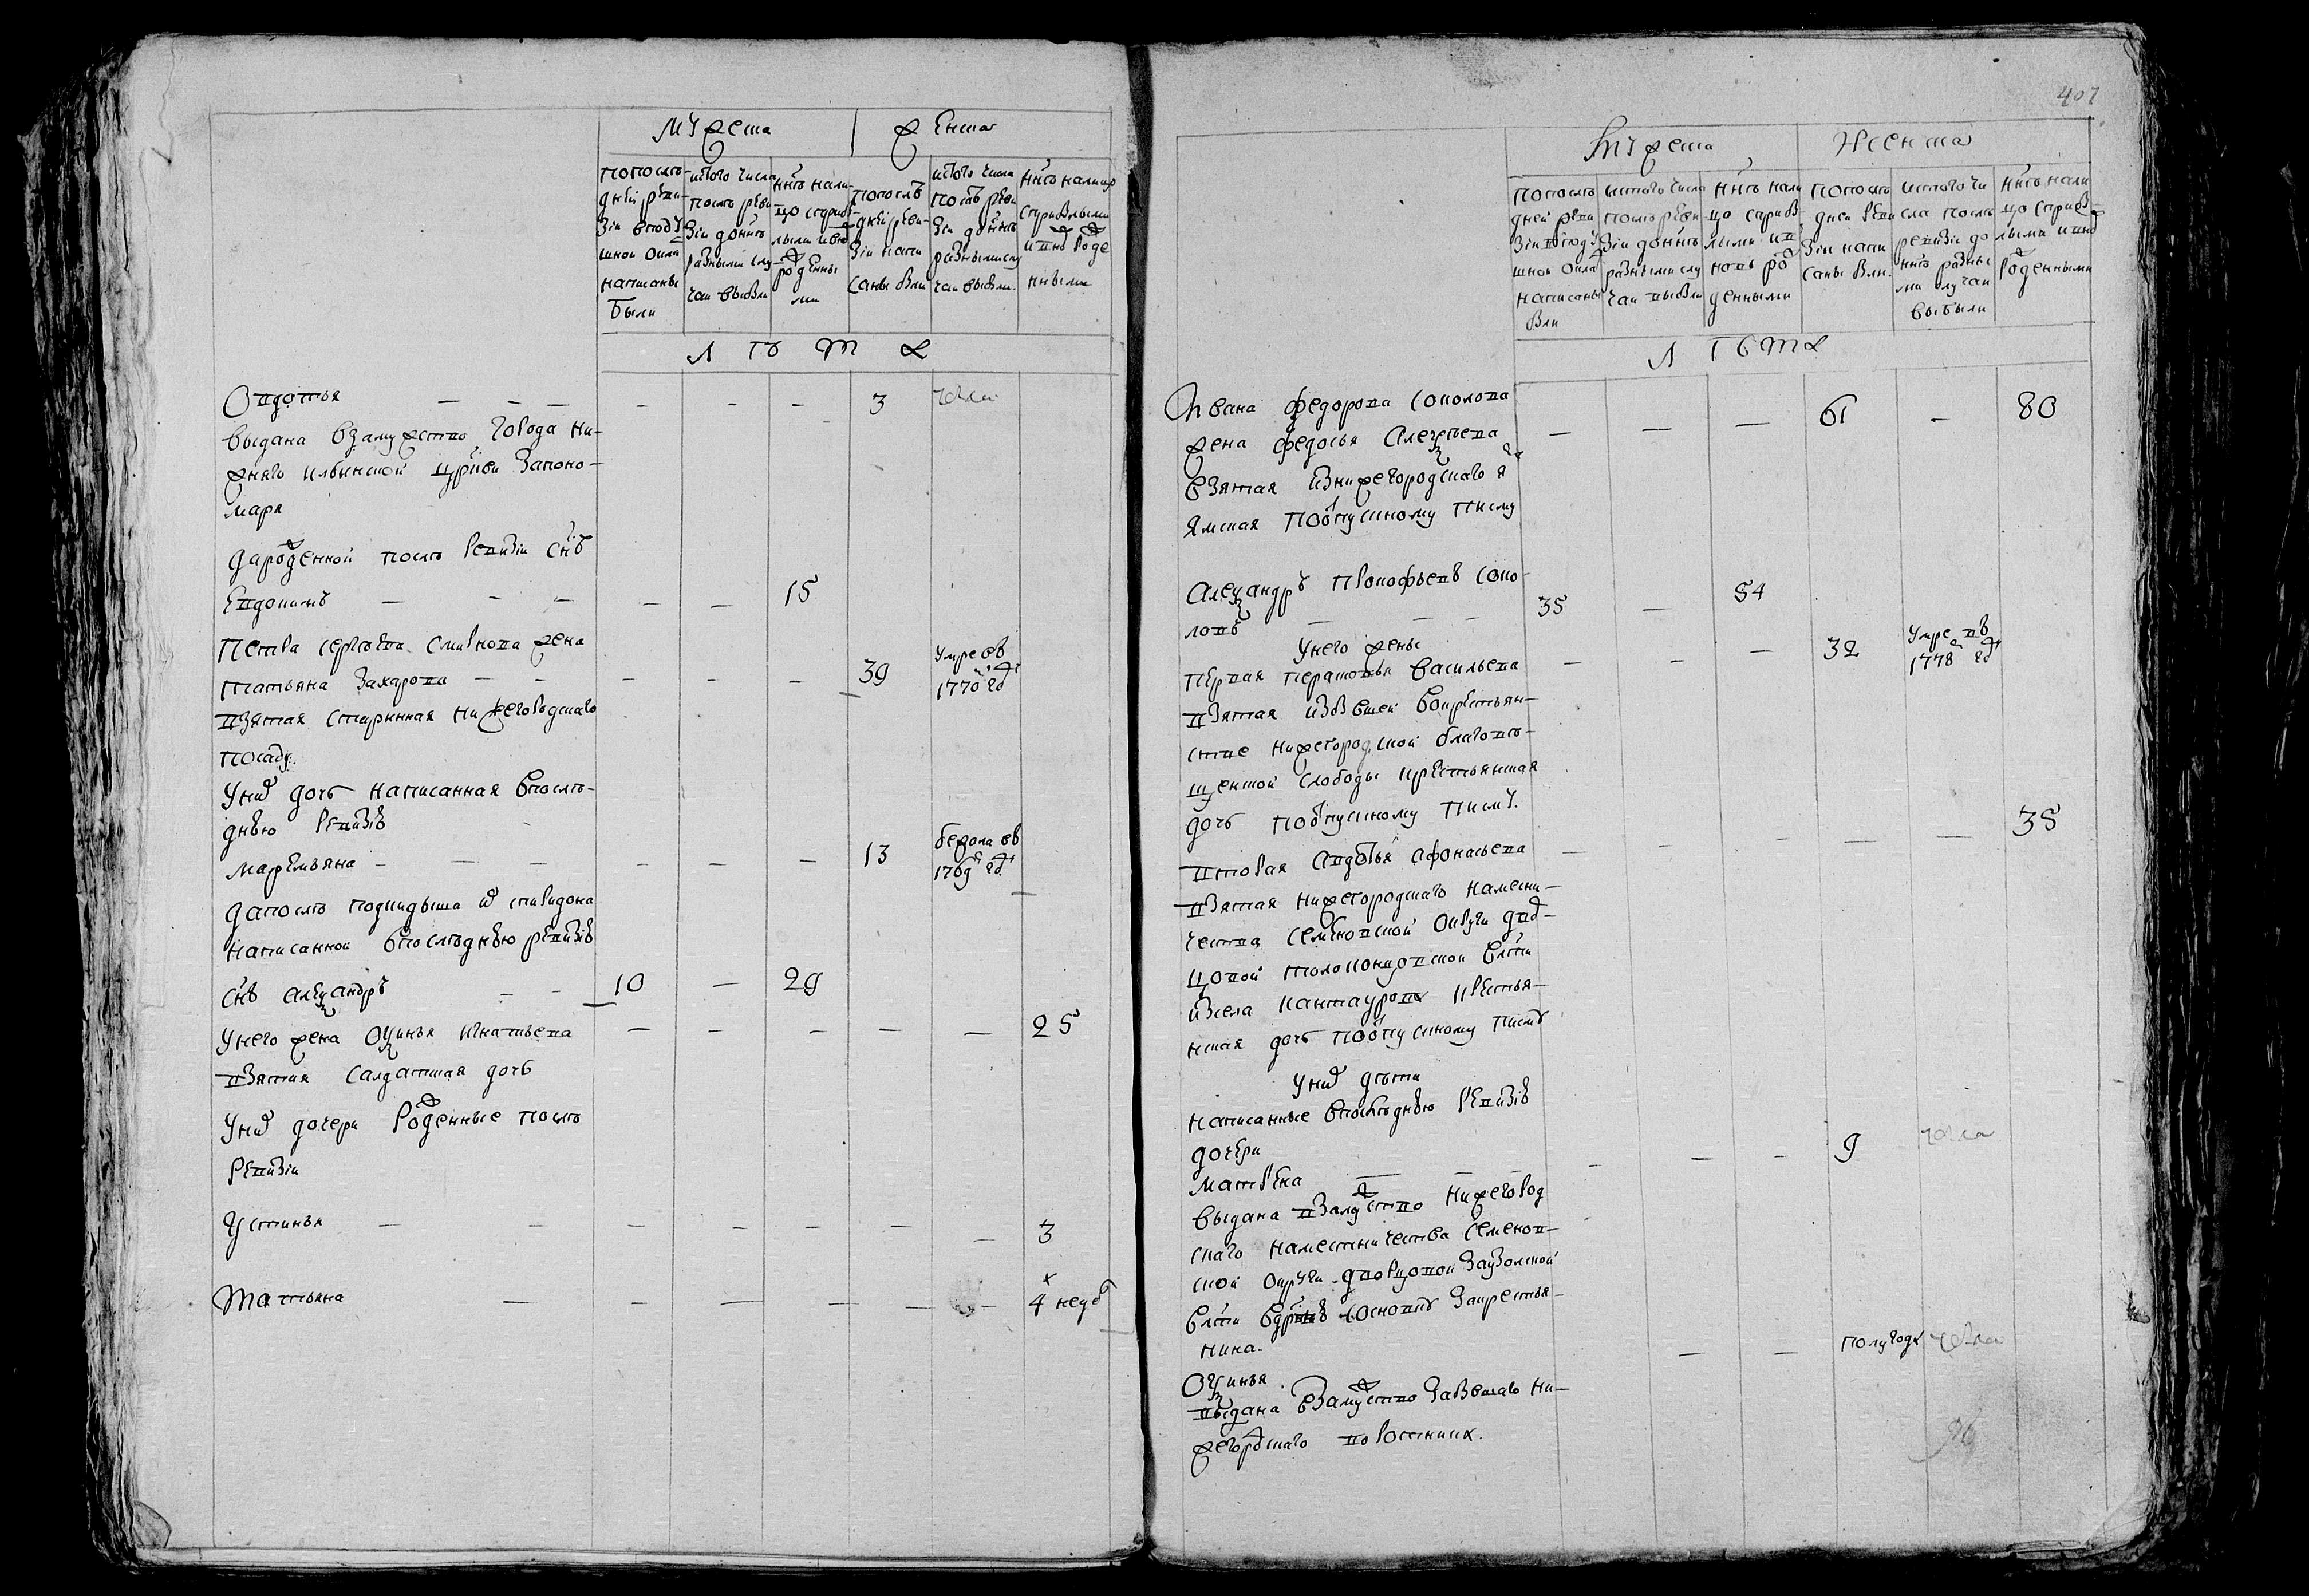 Мужеска
женска
по после-
дней реви-
зіи вподу-
шной оклад
написаны
были
истого числа
после реви
зіи доныне
разными слу
чаи выбыли
ныне нали-
цо сприбы-
лыми ивно
рожденны
ми
по после
дней реви-
зіи напи
саны были
истого числа
после реви
зіи доныне
разными слу
чаи выбыли
ныне налицо
сприбылыми
ивновь рожде
нными
л е т а
Овдотья — — — — — — 3
выдана взамужство города ни-
жняго ильинской цркви запоно-
маря
Да рожденной после ревизіи снъ
Евдокимъ — — — — — 15
Петра сергеева смирнова жена
татьяна захарова — — — — — 39 умре въ 1770м году
взятая старинная нижегородскаго
посаду
Уних дочь написанная впосле-
днюю ревизію
маремьяна — — — — — — 13 бежала въ 1769м году
Да после подкидыша от спиридона
написанной впоследнюю ревизію
снъ алеѯандръ — — 10 — 29
унего жена оѯинья игнатьева — — — — — 25
взятая салдатская дочь
Уних дочери рожденные после
ревизіи
Устинья — — — — — — — 3
татьяна — — — — — — 4 недѣ
407
Мужеска
Женска
по после
дней реви
зіи вподу
шной оклад
написаны
были
истого числа
после реви
зіи доныне
разными слу
чаи выбыли
ныне нали
цо сприбы-
лыми и в
новь ро
жденными
по после
дней реви
зіи напи
саны были
истого чи
сла после
ревизіи до
ныне разны
ми случаи
выбыли
ныне нали
цо сприбы-
лыми ивно
рожденными
л е т а
Ивана федорова соколова
жена федосья алеѯеева — — — 61 — 80
взятая изнижегородскаго
ямская поотпускному писму
Алеѯандръ прокофьевъ соко-
ловъ — — — 35 — 54
Унего жены
первая парасковья васильева — — — 32 умре въ 1778м году
взятая избывшей вокрестьян-
стве нижегородской благове-
щенской слободы крестьянская
дочь поотпускному писму.
вторая авдотья афонасьева — — — — — 35
взятая нижегородскаго намесни-
чества семеновской округи двор-
цовой толоконцовской влсти
изсела кантаурова крестья-
нская дочь поотпускному писму
Уних дети
написанные впоследнюю ревизію
дочери
матрена — — — — — — 9
выдана взамужство нижегород
скаго наместничества семенов-
ской округи дворцовой заузолской
влсти вдрвню сосновку закрестья-
нина.
Оѯинья — — полугода
выдана взамужство забывшаго ни-
жегородскаго